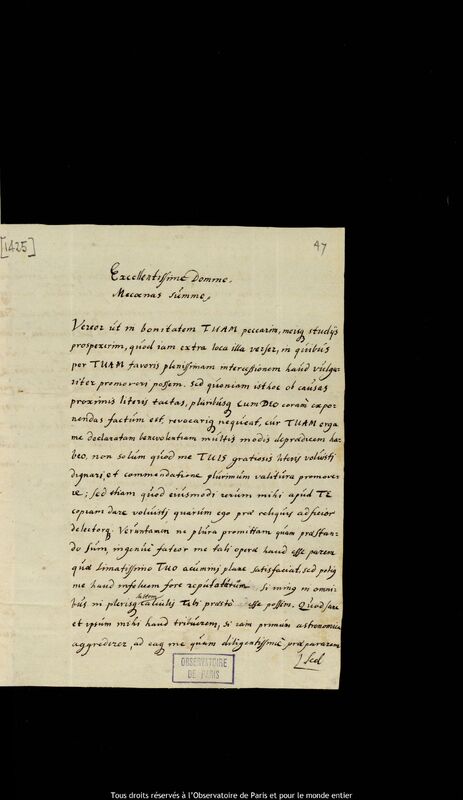 [1425]
47
Excellentissime Domine.
Mecænas Summe,
Vereor út in bonitatem TUAM peccarim, meisq studijs
prospexerim, quòd iam extra loca illa verser, in quibus
per TUAM favoris plenissimam intercessionem haud vulga-
riter promoveri possem. Sed quoniam isthoc ob causas
proximis literis tactas, pluribusq cum DEO coram expo-
nendas factum est, revocariq nequeat, cur TUAM erga
me declaratam benevolentiam multis modis deprædicem ha-
beo, non solùm quòd me TUIS gratiosis literis voluisti
dignari, et commendatione plurimùm valitura promove-
re; sed etiam quòd eiusmodi rerum mihi apud TE
copiam dare voluisti quarum ego præ reliquis adficior
delectorq. Veruntamen ne plura promittam quàm præstan-
do sum, ingenuè fateor me tali operæ haud esse parem
quæ limatissimo TUO acumini planè satisfaciat, sed potiq
me haud infelicem fore reputaturum si in omni-
bus ni plerisq saltem calculis Tibi præstò esse possim. Quod sanè
et ipsum mihi haud tribuerem, si iam primùm astronomica
aggrederer, ad eaq me quàm diligentissimè præpararem
Sed
OBSERVATOIRE
DE PARIS
Tous droits réservés à l'Observatoire de Paris et pour le monde entier